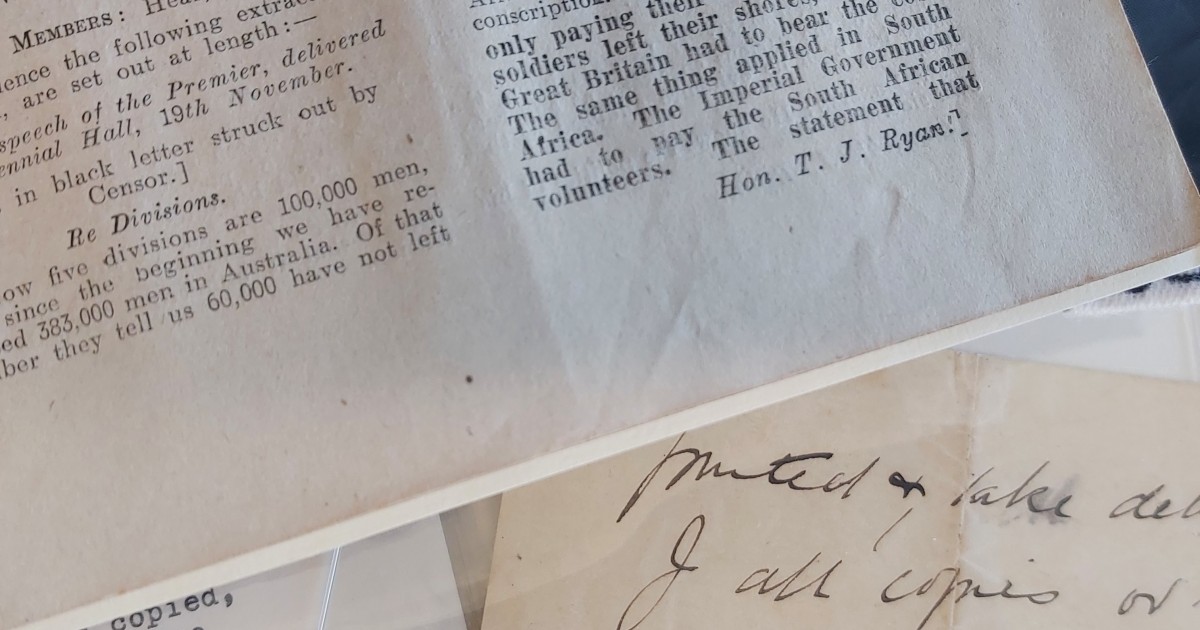 MEMBERS:
the following
are set out at length:—
speech of the Premier, delivered
Hall, 19th November.
in black letter struck out by
Censor.]
Re Divisions.
five divisions are 100,000 men,
since the beginning we have re-
383,000 men in Australia. Of that
they tell us 60,000 have not left
conscription.
only paying their
soldiers left their shores,
Great Britain had to bear the
The same thing applied in South
Africa. The Imperial Government
had to pay the South African
volunteers. The statement that
Hon. T. J. Ryan.]
printed & take
all copies or
copied,